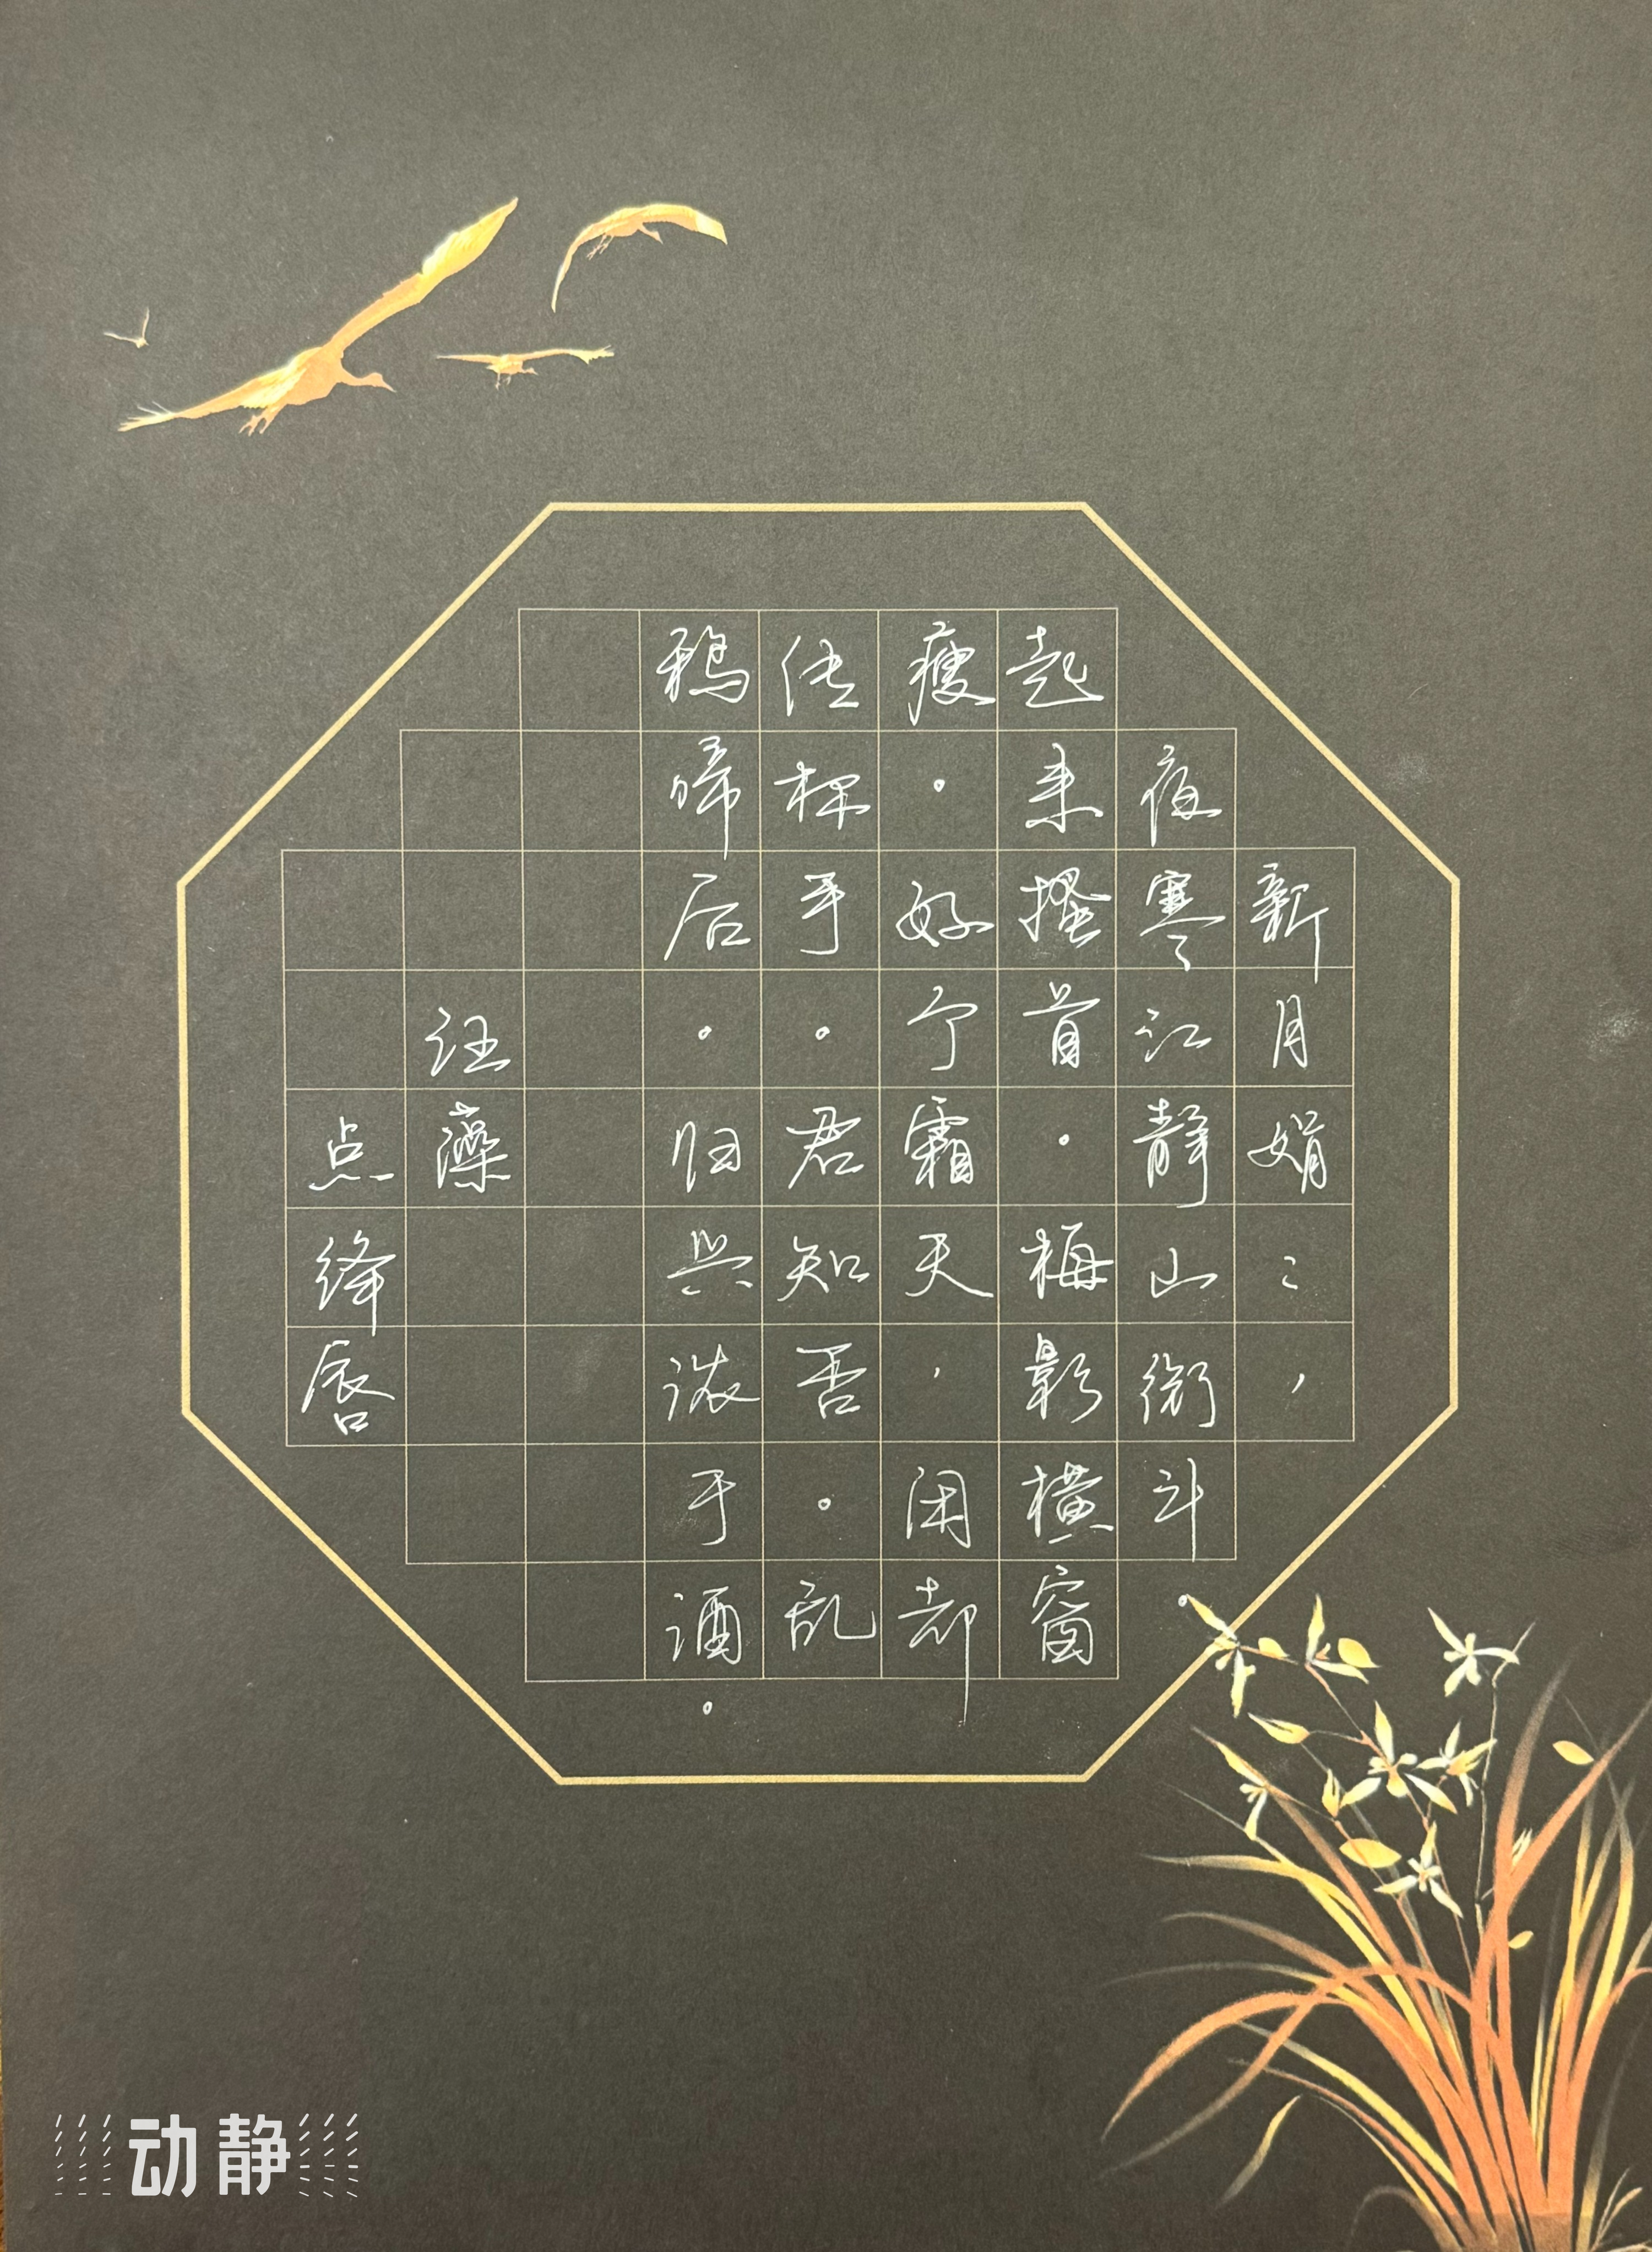 新月娟〻，
夜寒江静山衔斗。
起来搔首。梅影横窗
瘦。好个霜天，闲却
传杯手。君知否。乱
鸦啼后。归兴浓于酒。
汪藻
点绛唇
动静